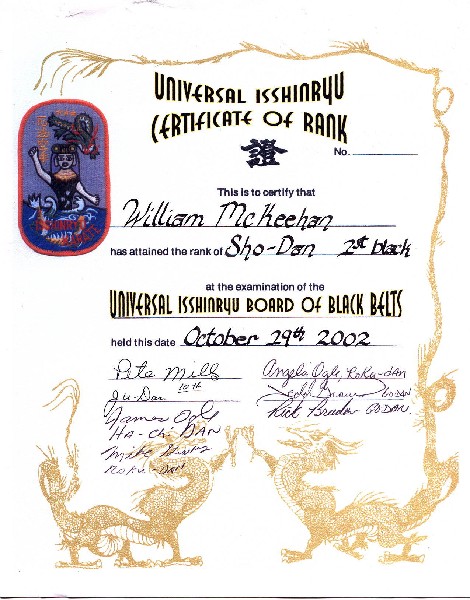 UNIVERSAL ISSHINRYU
CERTIFICATE OF RANK
證
No.
This is to certify that
William McKeehan
has attained the rank of Sho-Dan 1st black
at the examination of the
UNIVERSAL ISSHINRYU BOARD OF BLACK BELTS
held this date October 29th 2002
Pete Mills
10th
Ju-Dan
James Ogle
HA-Chi-DAN
Mike
ROKU-DAN
Angela Ogle, ROKU-DAN
GODAN
Rick GODAN
ISSHINRYU
KARATE